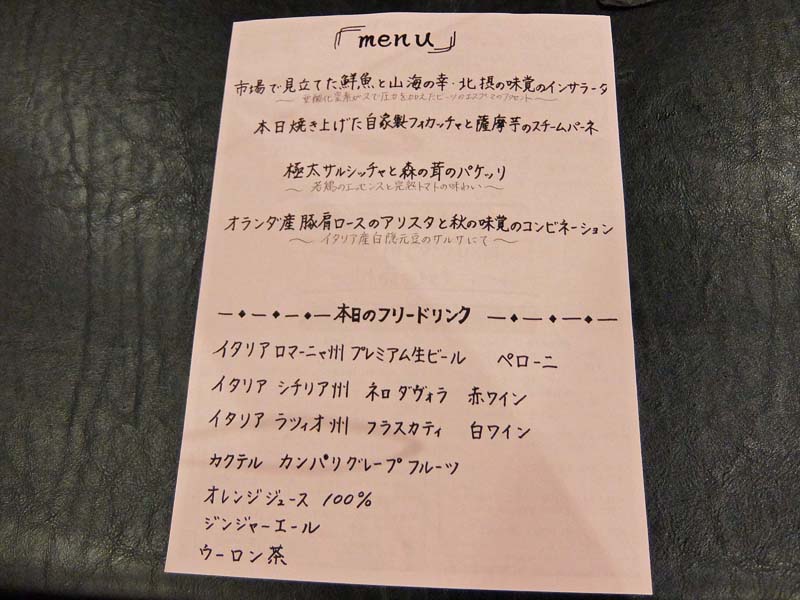 「menu」
市場で見立てた鮮魚と山海の幸・北摂の味覚のインサラータ
〜亜酸化窒素ガスで圧力を加えたビーツのエスプーマのアクセント〜
本日焼き上げた自家製フィカッチャと薩摩芋のスチームパーネ
極太サルシッチャと森の茸のパケッリ
〜若鶏のエッセンスと完熟トマトの味わい〜
オランダ産豚肩ロースのアリスタと秋の味覚のコンビネーション
〜イタリア産白隠元豆のサルサにて〜
本日のフリードリンク
イタリア ロマーニャ州 プレミアム生ビール ペローニ
イタリア シチリア州 ネロ ダヴォラ 赤ワイン
イタリア ラツィオ州 フラスカティ 白ワイン
カクテル カンパリグレープフルーツ
オレンジジュース 100%
ジンジャーエール
ウーロン茶